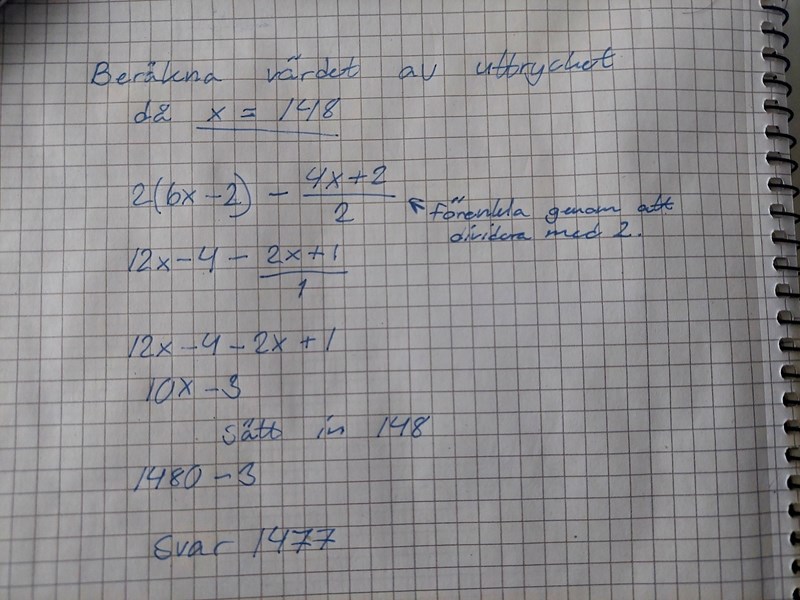 Beräkna värdet av uttrycket
då x = 148
2(6x-2) - (4x+2)/2
← Förenkla genom att
dividera med 2.
12x-4 - (2x+1)/1
12x-4-2x+1
10x-3
Sätt in 148
1480-3
Svar 1477